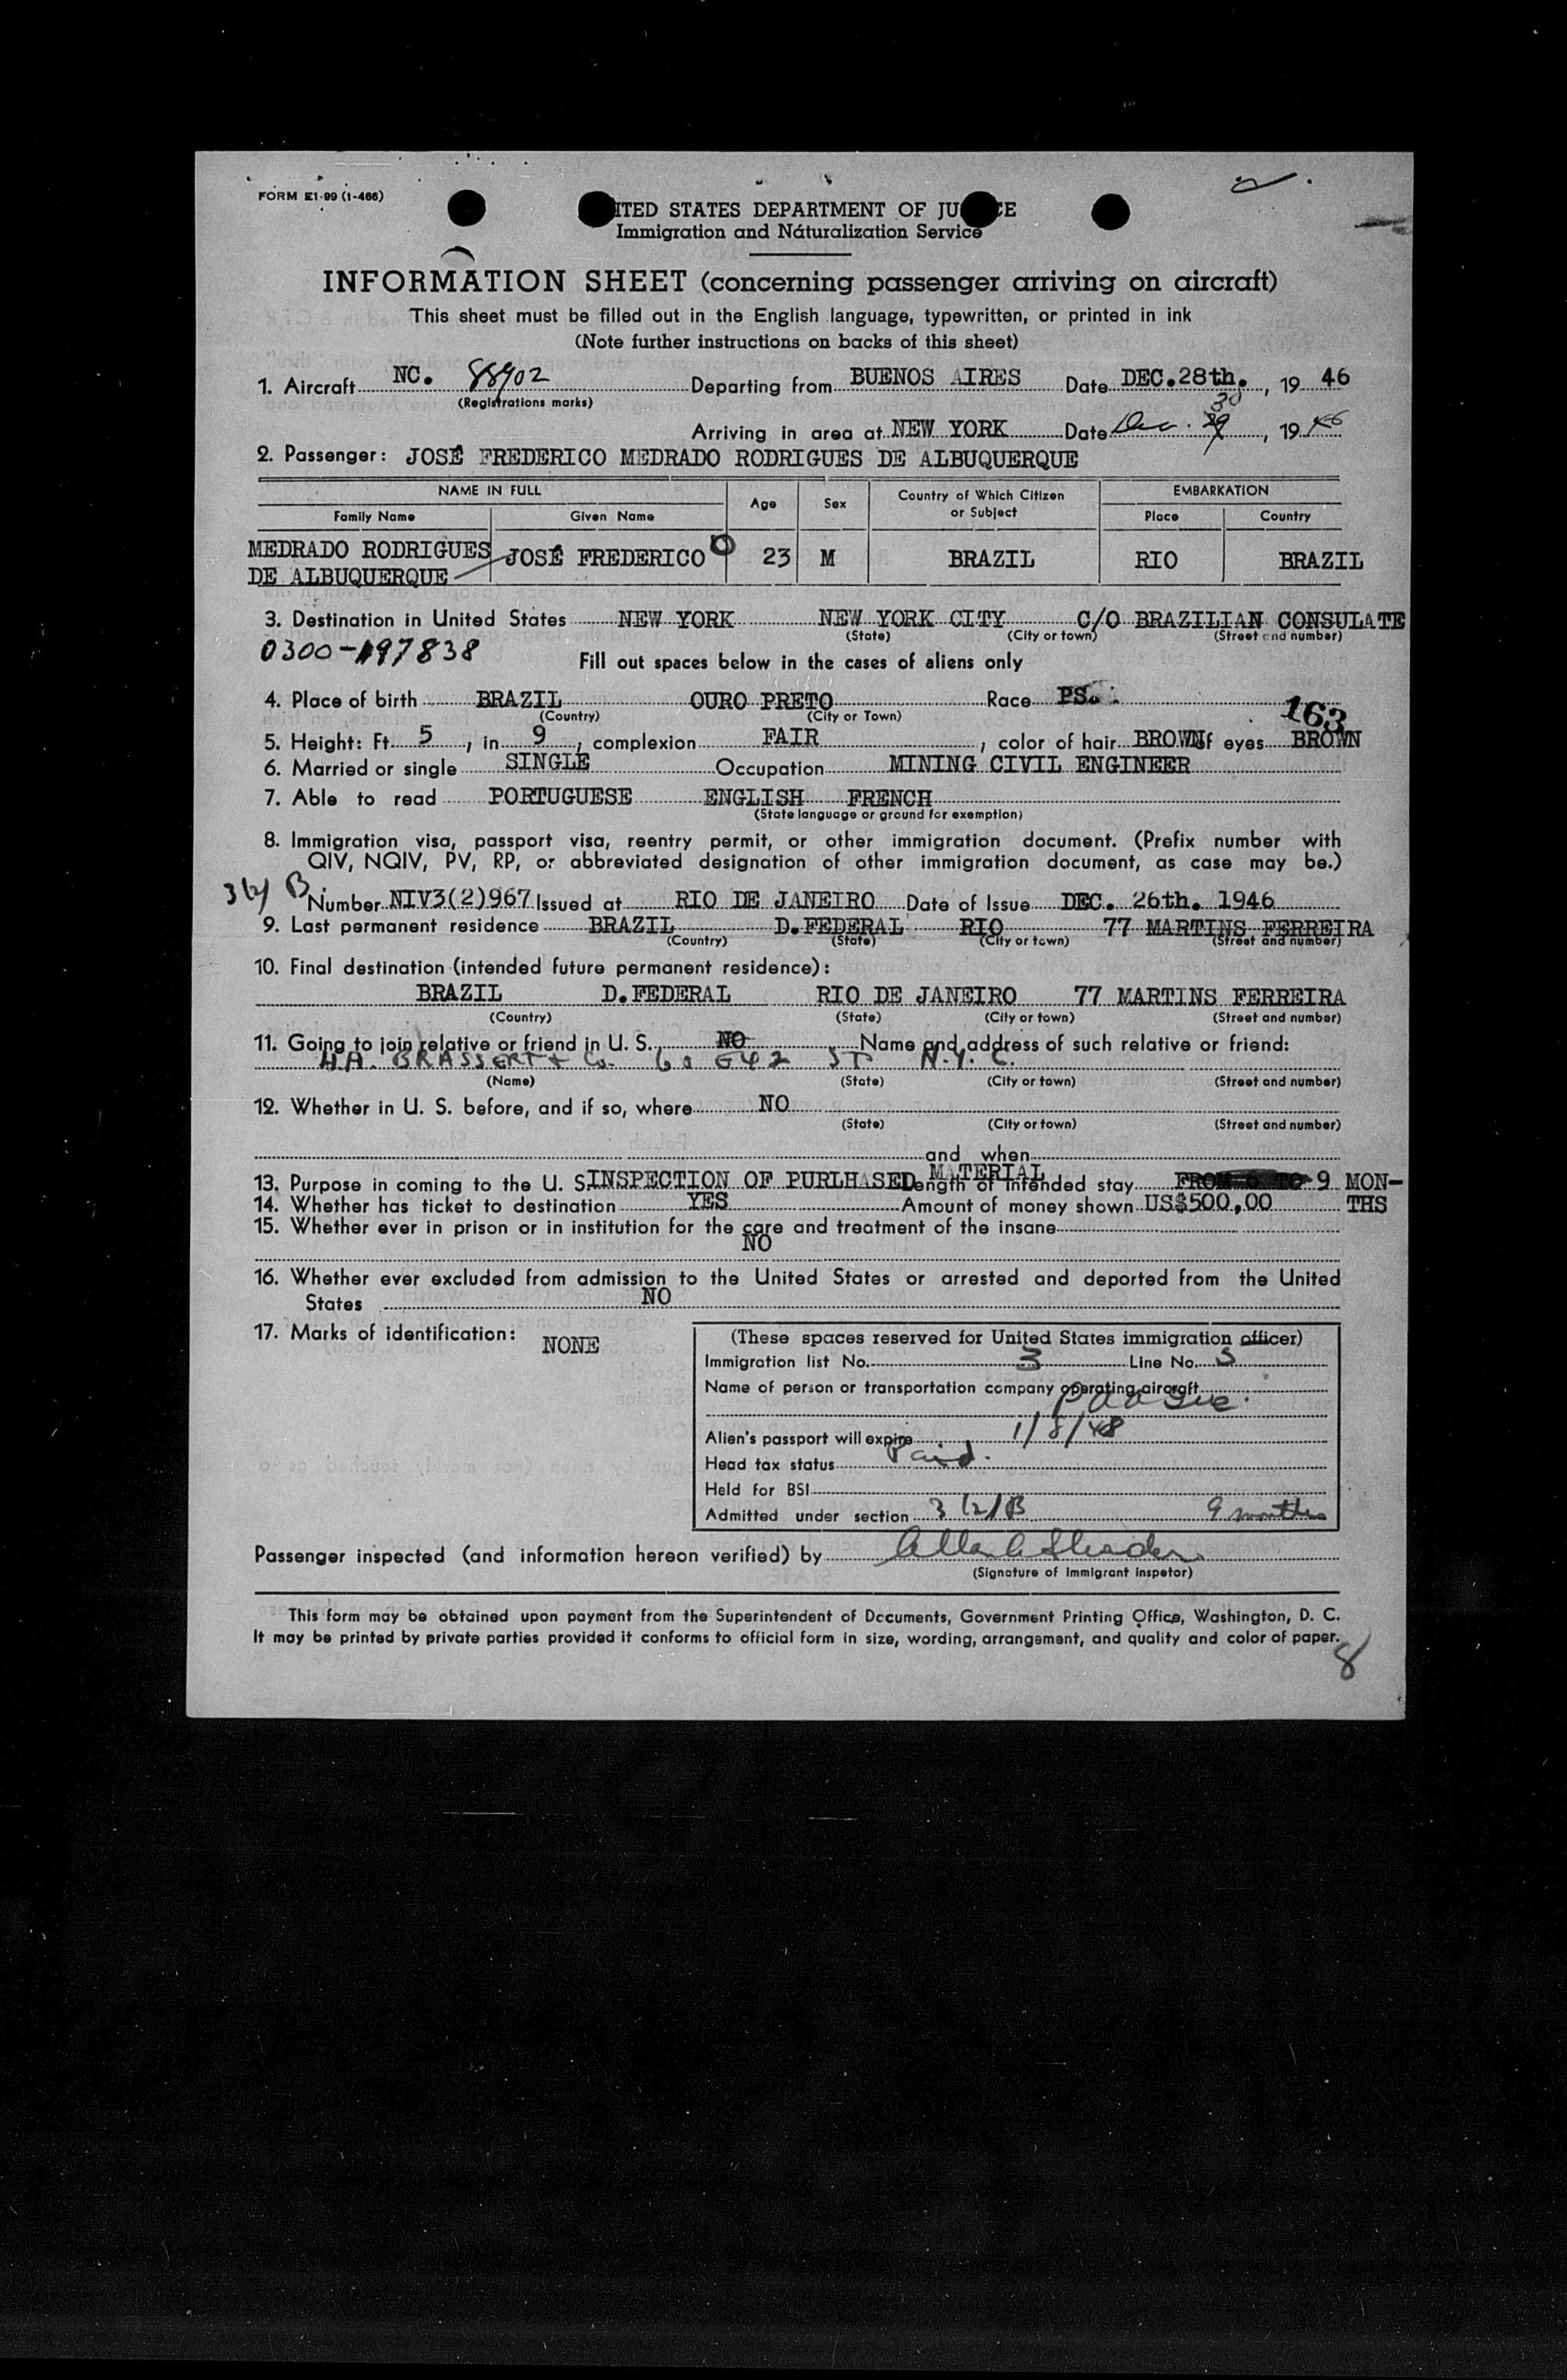 FORM E1-99 (1-466)
ITED STATES DEPARTMENT OF JU CE
Immigration and Naturalization Service
INFORMATION SHEET (concerning passenger arriving on aircraft)
This sheet must be filled out in the English language, typewritten, or printed in ink
(Note further instructions on backs of this sheet)
1. Aircraft NC. 88902 Departing from BUENOS AIRES Date DEC.28th. , 19 46
(Registrations marks)
30
Arriving in area at NEW YORK Date Dec. 29 , 19 46
2. Passenger: JOSÉ FREDERICO MEDRADO RODRIGUES DE ALBUQUERQUE
NAME IN FULL Age Sex Country of Which Citizen or Subject EMBARKATION
Family Name Given Name Place Country
MEDRADO RODRIGUES DE ALBUQUERQUE JOSÉ FREDERICO 23 M BRAZIL RIO BRAZIL
3. Destination in United States NEW YORK NEW YORK CITY C/O BRAZILIAN CONSULATE
(State) (City or town) (Street and number)
0300-197838
Fill out spaces below in the cases of aliens only
4. Place of birth BRAZIL OURO PRETO Race PS.
(Country) (City or Town)
163
5. Height: Ft. 5 , in 9 , complexion FAIR , color of hair BROWN of eyes BROWN
6. Married or single SINGLE Occupation MINING CIVIL ENGINEER
7. Able to read PORTUGUESE ENGLISH FRENCH
(State language or ground for exemption)
8. Immigration visa, passport visa, reentry permit, or other immigration document. (Prefix number with
QIV, NQIV, PV, RP, or abbreviated designation of other immigration document, as case may be.)
3(2) B
Number NIV3(2)967 Issued at RIO DE JANEIRO Date of Issue DEC. 26th. 1946
9. Last permanent residence BRAZIL D.FEDERAL RIO 77 MARTINS FERREIRA
(Country) (State) (City or town) (Street and number)
10. Final destination (intended future permanent residence):
BRAZIL D.FEDERAL RIO DE JANEIRO 77 MARTINS FERREIRA
(Country) (State) (City or town) (Street and number)
11. Going to join relative or friend in U. S. NO Name and address of such relative or friend:
H.A. BRASSERT & Co. 60 E42 ST N.Y.C.
(Name) (State) (City or town) (Street and number)
12. Whether in U. S. before, and if so, where NO
(State) (City or town) (Street and number)
and when
13. Purpose in coming to the U. S. INSPECTION OF PURLHASED MATERIAL Length of intended stay FROM 6 TO 9 MON-
14. Whether has ticket to destination YES Amount of money shown US$500,00 THS
15. Whether ever in prison or in institution for the care and treatment of the insane
NO
16. Whether ever excluded from admission to the United States or arrested and deported from the United
States NO
17. Marks of identification: NONE
(These spaces reserved for United States immigration officer)
Immigration list No. 3 Line No. 5
Name of person or transportation company operating aircraft
Alien's passport will expire 1/8/48
Head tax status Paid.
Held for BSI
Admitted under section 3(2)B 9 months
Passenger inspected (and information hereon verified) by
(Signature of Immigrant Inspetor)
This form may be obtained upon payment from the Superintendent of Documents, Government Printing Office, Washington, D. C.
It may be printed by private parties provided it conforms to official form in size, wording, arrangement, and quality and color of paper.
8